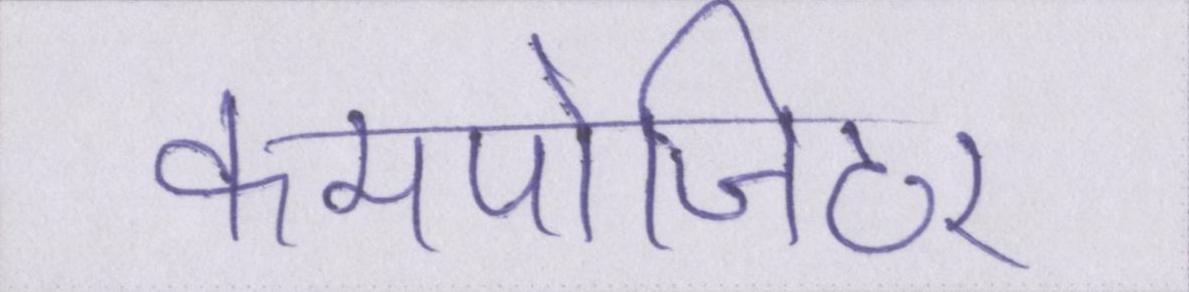 कमपोजिटर